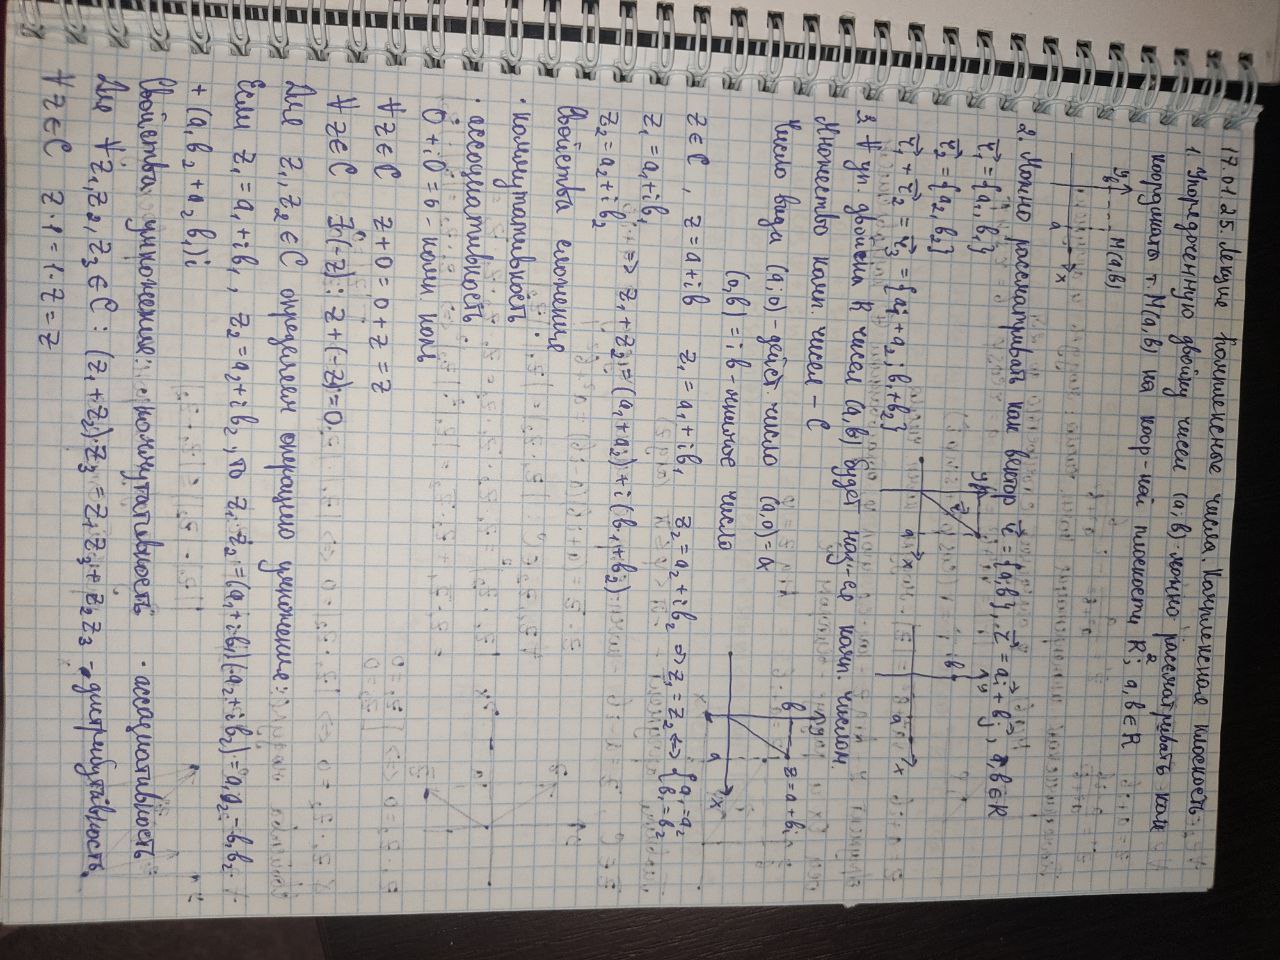 17.01.25 Лекция Комплексные числа. Комплексная плоскость
1. Упорядоченную двойку чисел (a,b) можно рассматривать как
координаты т. M(a,b) на коор-ной плоскости R²; a,b∈R
y
b
M(a,b)
a
x
2. Можно рассматривать как вектор r⃗={a,b}, r⃗=ai⃗+bj⃗, a,b∈R
r⃗₁={a₁,b₁}
r⃗₂={a₂,b₂}
r⃗₁+r⃗₂=r⃗₃={a₁+a₂; b₁+b₂}
3. ∀ уп. двойки R чисел (a,b) будет наз-ся комп. числом
Множество комп. чисел – C
Число вида (a,0) – дейст. число (a,0)=a
(0,b)=ib – мнимое число
z∈C, z=a+ib z₁=a₁+ib₁ z₂=a₂+ib₂ ⇒ z₁=z₂ ⇔ {a₁=a₂
b₁=b₂
b
z=a+bi
a
x
z₁=a₁+ib₁
z₂=a₂+ib₂ ⇒ z₁+z₂=(a₁+a₂)+i(b₁+b₂)
Свойства сложения
· коммутативность
· ассоциативность
0+i0=0 – комп. ноль
∀z∈C z+0=0+z=z
∀z∈C ∃(-z): z+(-z)=0
Для z₁,z₂∈C определен операцию умножение:
Если z₁=a₁+ib₁, z₂=a₂+ib₂, то z₁·z₂=(a₁+ib₁)(a₂+ib₂)=a₁a₂-b₁b₂+
+(a₁b₂+a₂b₁)i
Свойства умножения: · коммутативность · ассоциативность
Для ∀z₁,z₂,z₃∈C: (z₁+z₂)·z₃=z₁z₃+z₂z₃ – дистрибутивность
∀z∈C z·1=1·z=z